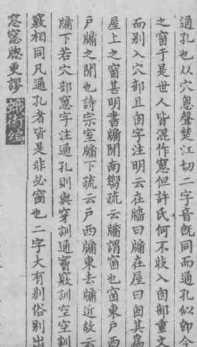 通孔也別从穴悤聲楚江切二字音既同而通孔似即今
之窗于是世人皆混作窻但許氏何不歧入囱部重文
而別入穴部且囱字注明云在牆曰牖在屋曰囱其爲
屋上之窗甚明書牖閒南嚮疏云牖謂窗也窗東戶西
戶牖之閒也詩宗室牖下疏云戶西牖東去牖近故云
牖下若穴部窻字注通孔則與穿訓通竅訓空空訓
竅相同凡通孔者皆是非必窗也二字大有別俗別出
窓窻牕更謬